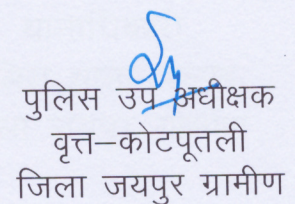 पुलिस उप अधीक्षक
वृत्त–कोटपूतली
जिला जयपुर ग्रामीण